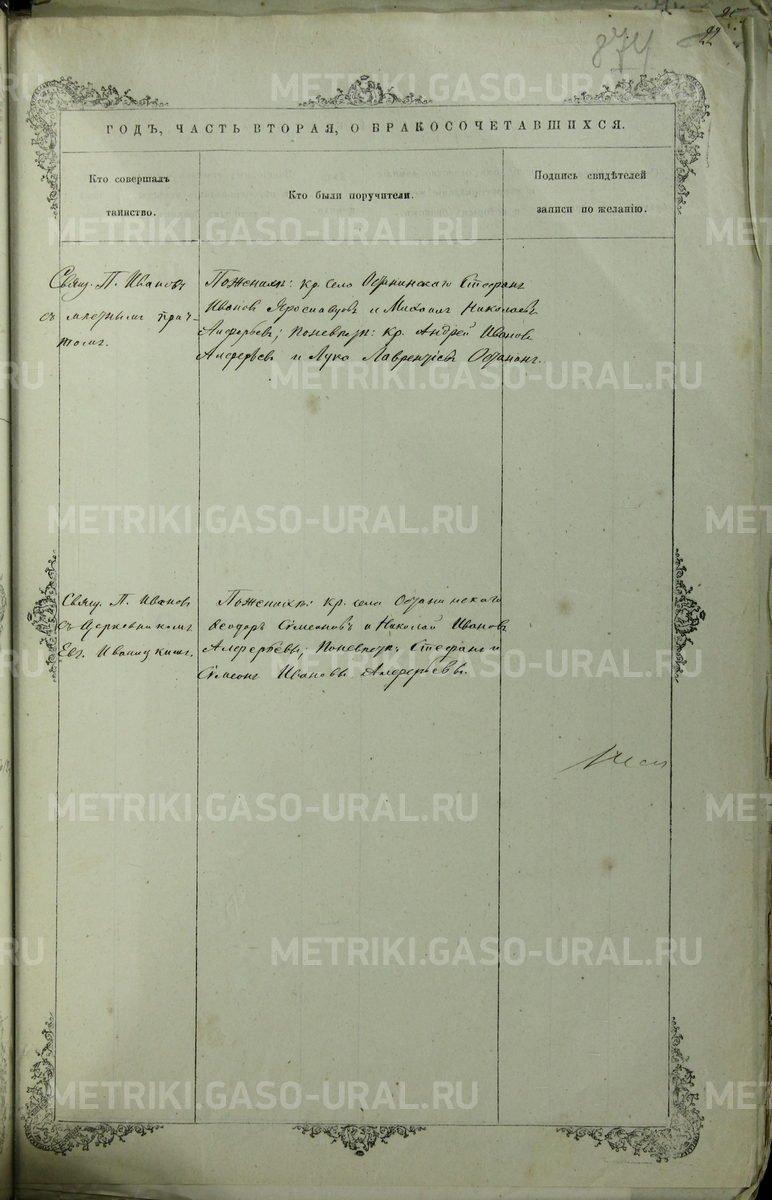 874
22
ГОДЪ, ЧАСТЬ ВТОРАЯ, О БРАКОСОЧЕТАВШИХСЯ.
Кто совершалъ
таинство.
Кто были поручители.
Подпись свидѣтелей
записи по желанію.
Свящ. П. Ивановъ
съ мѣстнымъ прич-
томъ.
По женихѣ: кр. села Останинскаго Стефанъ
Иванов Ярославцов и Михаилъ Николаевъ
Алферьевъ; по невѣстѣ: кр. Андрей Иванов
Алферьевъ и Лука Лаврентьевъ Останинъ.
Свящ. П. Ивановъ
съ Церковникомъ
Евг. Иваницкимъ.
По женихѣ: кр. села Останинскаго
Ѳеодоръ Симеоновъ и Николай Ивановъ
Алферьевы; По невѣстѣ: Стефанъ и
Симеонъ Ивановы Алферьевы.
METRIKI.GASO-URAL.RU